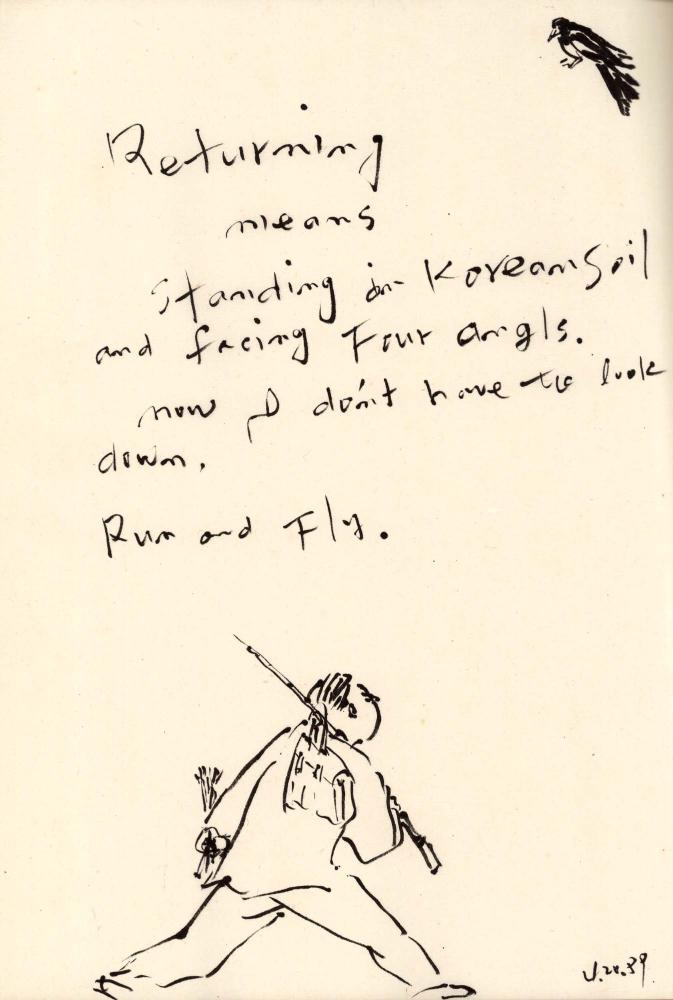 Returning
means
Standing in Korean Soil
and facing Four angls.
now I don't have to look
down.
Run and Fly.